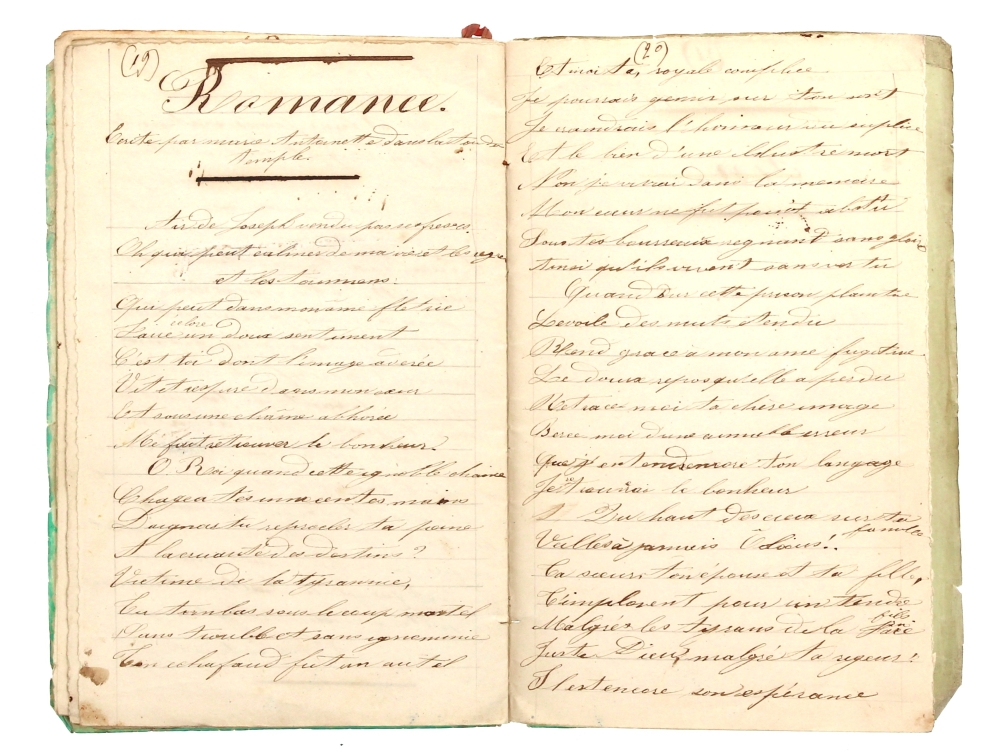 (19)
Romance.
Ecrite par marie Antoinette dans la tour du
temple.
Air de Joseph vendu par ses freres.
Oh qui peut calmer de ma vie et les
et les tourmens.
Qui peut dans mon ame fletrie
Faire un doux sentiment
C'est toi dont l'image averée
Vit et respire dans mon cœur
Et sous une chaine abhorée
Me fait retrouver le bonheur.
O Roi quand cette ignoble chaine
Chargea tes innocentes mains
Daignas tu reprocher ta peine
A la cruauté des destins?
Victime de la tyrannie,
Tu tombas sous le coup mortel
Sans trouble et sans ignominie
Ton echafaud fut un autel
(20)
Et moi ta royale complice
Je pourrais gemir sur ton sort
Je craindrois l'honneur du suplice
Et le bien d'une illustre mort
Non je vivrai dans la memoire
Mon cœur ne fut point abatu
Sous tes bourreaux regnant sans gloire
Ainsi qu'ils vivent sans vertu
Quand sur cette prison plaintive
Le voile des nuits etendu
Rend grace a mon ame fugitive
Le doux repos qu'elle a perdu
Retrace moi ta chère image
Berce moi d'une aimable erreur
Que j'entend encore ton langage
Je retrouvrai le bonheur
Du haut des cieux sur ta
famille
Veilles à jamais Ô Louis!
Ta sœur, ton épouse et ta fille,
T'implorent pour un tendre
fils
Malgrés les tyrans de la
Juste Dieu, malgré ta rigeur!
Il est encore son espérance